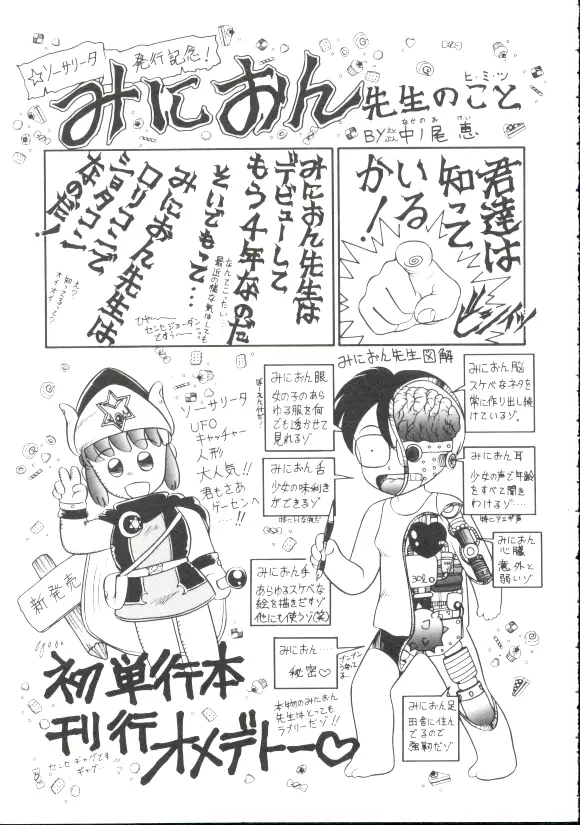 ☆ソーサリータ
発行記念!
みにおん先生のこと
ヒ・ミ・ツ
BY中ノ尾 恵
なかのお けい
君達は
知って
いる
か!
ビシィッ
みにおん先生は
デビューして
もう4年なのだ
そいでもって…
なんてこったい…
最近の様な気はしても
みにおん先生は
ロリコンで
ショタコン
なのだ!
ひゃー
センセジョーダン
ですぅー
えっ
知ってるって?
オイオイ
みにおん先生図解
みにおん眼
女の子のあら
ゆる服を何
でも透かせて
見れるゾ
みにおん舌
少女の味利き
ができるゾ
みにおん手
あらゆるスケベな
絵を描きだすゾ
他にも使うゾ(笑)
みにおん…
秘密♡
みにおん脳
スケベなネタを
常に作り出し続
けているゾ。
みにおん耳
少女の声で年齢
をすべて聞き
わけるゾ…
時にアエギ声
みにおん
心臓
意外と
弱いゾ
みにおん足
田舎に住ん
でるので
強靭だゾ
本物のみにおん
先生はとっても
ラブリーだゾ!!
ソーサリータ
UFO
キャッチャー
人形
大人気!!
君もさあ
ゲーセンへ
…!!
新発売
初単行本
刊行オメデトー♡
センセ ギャグです
ギャグ…